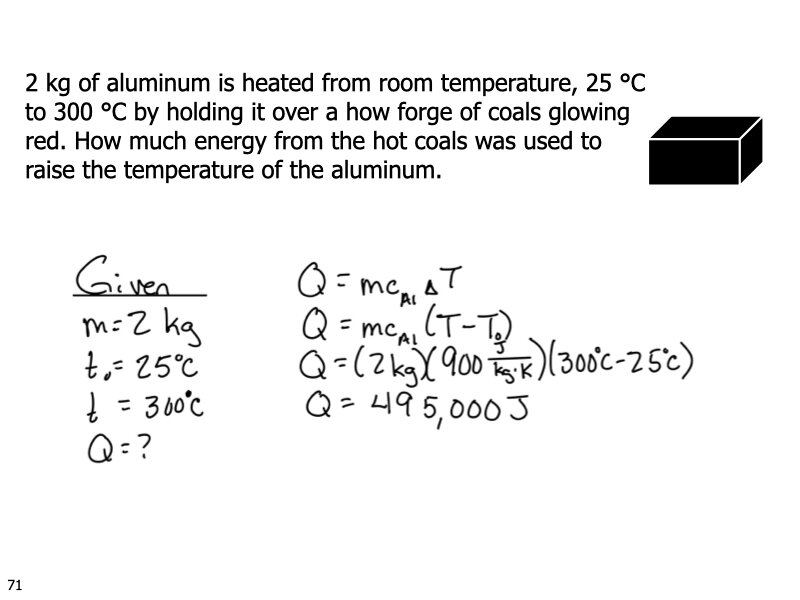 2 kg of aluminum is heated from room temperature, 25 °C
to 300 °C by holding it over a how forge of coals glowing
red. How much energy from the hot coals was used to
raise the temperature of the aluminum.
Given
m=2 kg
t₀=25°C
t =300°C
Q=?
Q=mc_Al ΔT
Q=mc_Al (T-T₀)
Q=(2kg)(900 J/kg·K)(300°C-25°C)
Q= 495,000J
71